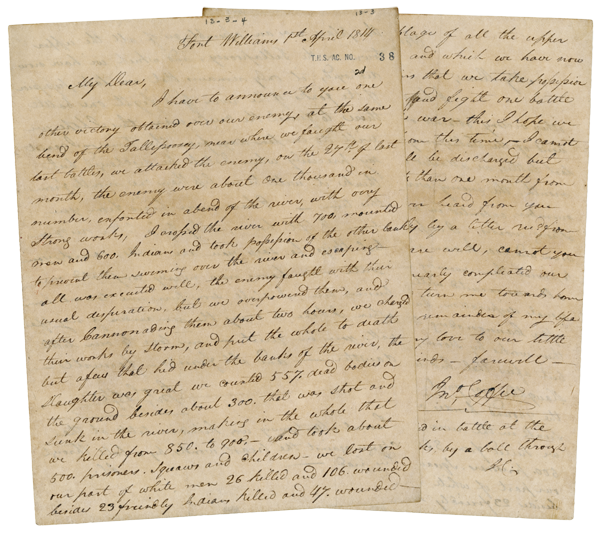 12-2-4
12-3
Fort Williams 1st April 1814
T.H.S. AC. NO. 38
My Dear,
I have to announce to you one
other victory obtained over our enemy, at the same
bend of the Tallepoosey, near where we faught our
last battles, we attacked the enemy, on the 27th of last
month, the enemy were about one thousand in
number, enforted in a bend of the river, with very
strong works, I crossed the river with 700 mounted
men and 600 Indians and took possession of the other bank
to prevent them swiming over the river and escaping
all was executed well, the enemy faught with their
usual desperation, but we overpowered them, and
after Cannonading them about two hours, we charged
their works by storm, and put the whole to death
but a few that hid under the banks of the river, the
slaughter was great we counted 557 dead bodies on
the ground besides about 300 that was shot and
sunk in the river, making in the whole that
we killed from 850 to 900 — and took about
500 prisoners. Squaws and children — we lost on
our part of white men 26 killed and 106 wounded
beside 23 friendly Indians killed and 47 wounded —
of all the upper
and which we have now
that we take possession
and fight one battle
war — this I hope we
this time — I cannot
be discharged but
than one month from
heard from you
by a letter
well, cannot you
complicated our
turn me towards home
remainder of my life
my love to our little
— farewell —
Jno. Coffee
in battle at the
by a ball through